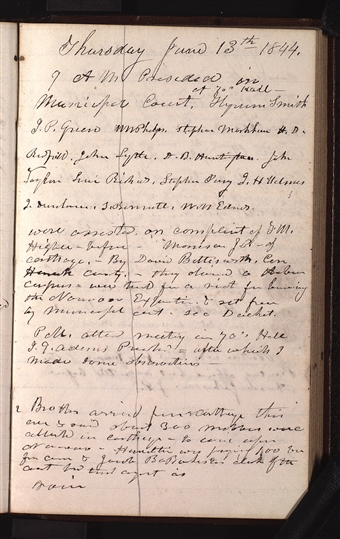 Thursday June 13th 1844.
9 A M Presided in
Municipal Court, at 70s Hall – Hyrum Smith
J. P. Green W W Phelps, Stephen Markham H. D.
Redfield, John Lytle, D. B. Huntington, John
Taylor Levi Richards, Stephen Perry J. H Holmes
J. Dunham, S Bennett, W. W Edwards,
were arrested, on complaint of F M.
Higbee – before – Morrison J. P. – of
Carthage, – By David Bettisworth, Con
Hancock county, – they obtained a Habeas
Corpus – were tried for a riot for burning
the Nauvoo Expositor & set free
by Municipal court – see Docket.
Public attended meeting in 70s Hall
J. G. Adams Preached – after which I
made some observations
2 Brothers arrived from Carthage this
eve & said about 300 mobbers were
assembled in Carthage – to come upon
Nauvoo – Hamilton was paying
for corn & Jacob B Backenstos clerk of the
court
rain